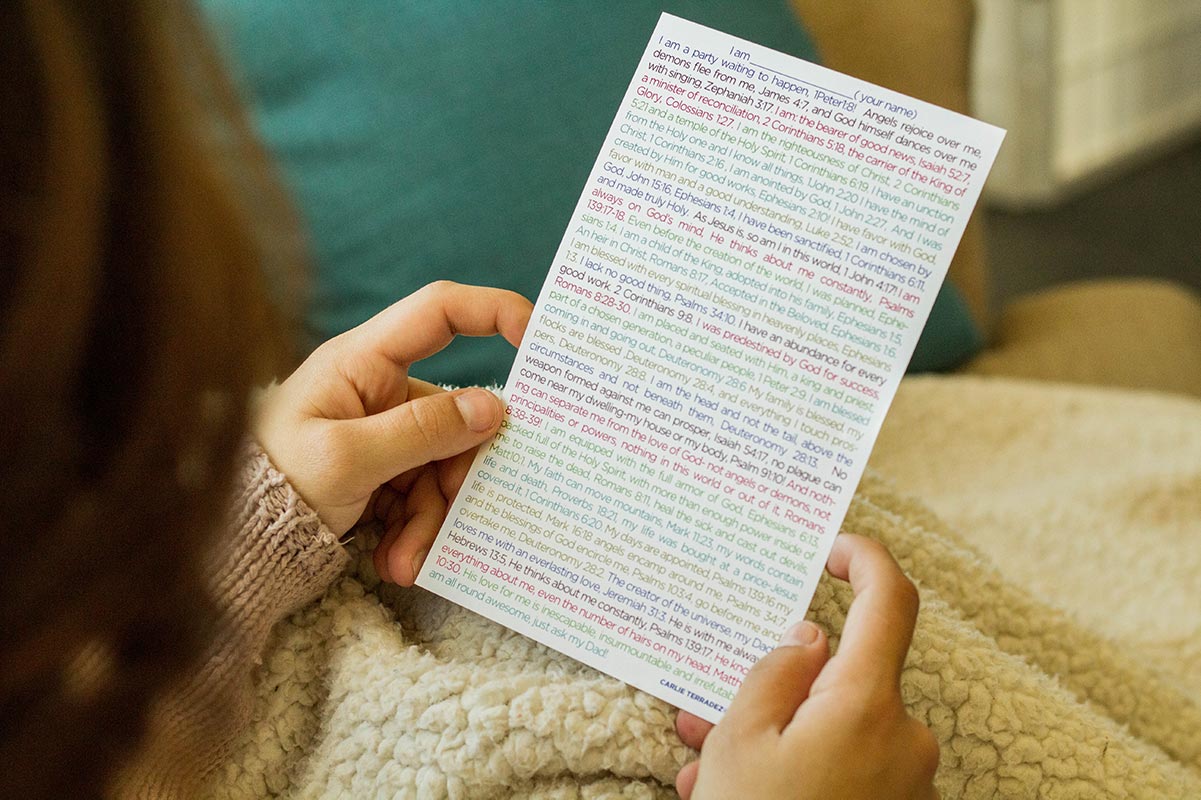 I am____________( your name)
I am a party waiting to happen, 1Peter1:8! Angels rejoice over me,
demons flee from me, James 4:7, and God himself dances over me
with singing, Zephaniah 3:17. I am: the bearer of good news, Isaiah 52:7,
a minister of reconciliation, 2 Corinthians 5:18, the carrier of the King of
Glory, Colossians 1:27. I am the righteousness of Christ, 2 Corinthians
5:21 and a temple of the Holy Spirit, 1 Corinthians 6:19. I have an unction
from the Holy one and I know all things, 1John 2:20 I have the mind of
Christ, 1 Corinthians 2:16, I am anointed by God, 1 John 2:27, And I was
created by Him for good works, Ephesians 2:10! I have favor with God,
favor with man and a good understanding, Luke 2:52. I am chosen by
God, John 15:16, Ephesians 1:4, I have been sanctified, 1 Corinthians 6:11,
and made truly Holy. As Jesus is, so am I in this world, 1 John 4:17! I am
always on God's mind, He thinks about me constantly, Psalms
139:17-18. Even before the creation of the world, I was planned, Ephe-
sians 1:4. I am a child of the King, adopted into his family, Ephesians 1:5,
An heir in Christ, Romans 8:17, Accepted in the Beloved, Ephesians 1:6.
I am blessed with every spiritual blessing in heavenly places, Ephesians
1:3. I lack no good thing, Psalms 34:10. I have an abundance for every
good work. 2 Corinthians 9:8. I was predestined by God for success,
Romans 8:28-30. I am placed and seated with Him, a king and priest,
part of a chosen generation, a peculiar people, 1 Peter 2:9. I am blessed
coming in and going out, Deuteronomy 28:6 My family is blessed my
flocks are blessed ,Deuteronomy 28:4, and everything I touch pros-
pers, Deuteronomy 28:8. I am the head and not the tail, above the
circumstances and not beneath them, Deuteronomy 28:13. No
weapon formed against me can prosper, Isaiah 54:17, no plague can
come near my dwelling-my house or my body, Psalm 91:10! And noth-
ing can separate me from the love of God- not angels or demons, not
principalities or powers, nothing in this world or out of it, Romans
8:38-39! I am equipped with the full armor of God, Ephesians 6:13
packed full of the Holy Spirit, with more than enough power inside of
me to raise the dead, Romans 8:11, heal the sick and cast out devils,
Matt10:1. My faith can move mountains, Mark 11:23, my words contain
life and death, Proverbs 18:21, my life was bought at a price-Jesus
covered it, 1 Corinthians 6:20. My days are appointed, Psalms 139:16 my
life is protected, Mark 16:18 angels encamp around me, Psalms 34:7,
and the blessings of God encircle me, Psalm 103:4, go before me and
overtake me, Deuteronomy 28:2. The creator of the universe, my Dad
loves me with an everlasting love, Jeremiah 31:3. He is with me alwa
Hebrews 13:5, He thinks about me constantly, Psalms 139:17. He kno
everything about me, even the number of hairs on my head, Matth
10:30. His love for me is inescapable, insurmountable and irrefutab
am all round awesome, just ask my Dad!
CARLIE TERRADEZ